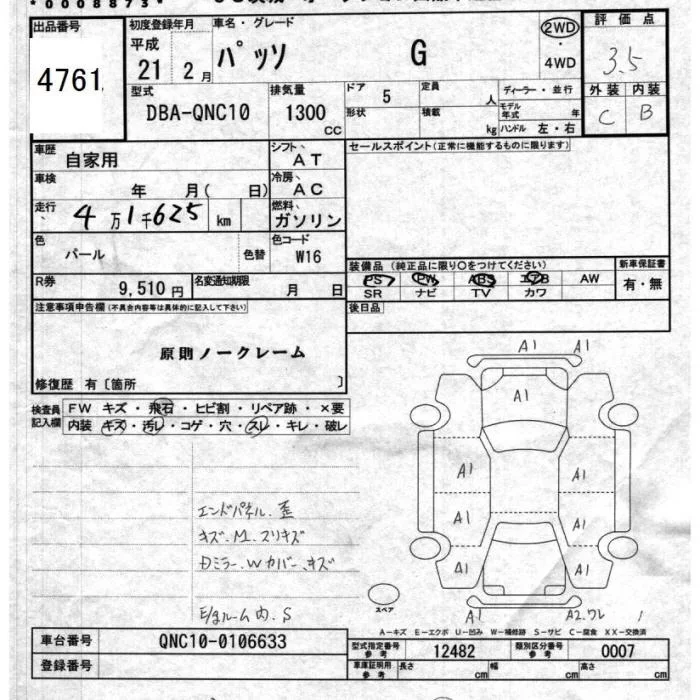 *0008873*
出品番号
4761
初度登録年月
平成
21 2月
車名・グレード
パッソ G
2WD
・
4WD
評価点
3.5
外装 内装
C B
型式
DBA-QNC10
排気量
1300
CC
ドア 5
形状
定員 人
積載 kg
ディーラー・並行
モデル年式 年
ハンドル 左・右
車歴
自家用
シフト
AT
車検
年 月( 日)
冷房
AC
走行
4万1千625 km
燃料
ガソリン
色
パール
色替
色コード
W16
R券
9,510円
名変通知期限
月 日
セールスポイント(正常に機能するものに限ります)
装備品(純正品に限り○をつけてください)
PS PW ABS エアB AW
SR ナビ TV カワ
新車保証書
有・無
後日品
注意事項申告欄(不具合内容等は具体的に記入して下さい)
原則ノークレーム
修復歴 有〔箇所 〕
検査員記入欄
FW キズ・飛石・ヒビ割・リペア跡・×要
内装 キズ・汚レ・コゲ・穴・スレ・キレ・破レ
エンドパネル.歪
キズ.M.スリキズ
Dミラー.Wカバー.キズ
E/gルーム内.S
A1 A1
A1
A1 A1
A1 A1
A1 A1
A1 A2.ワレ
スペア
A-キズ E-エクボ U-凹み W-補修跡 S-サビ C-腐食 XX-交換済
車台番号
QNC10-0106633
登録番号
型式指定番号
参考
12482
類別区分番号
参考
0007
車庫証明用
参考
長さ cm
幅 cm
高さ cm